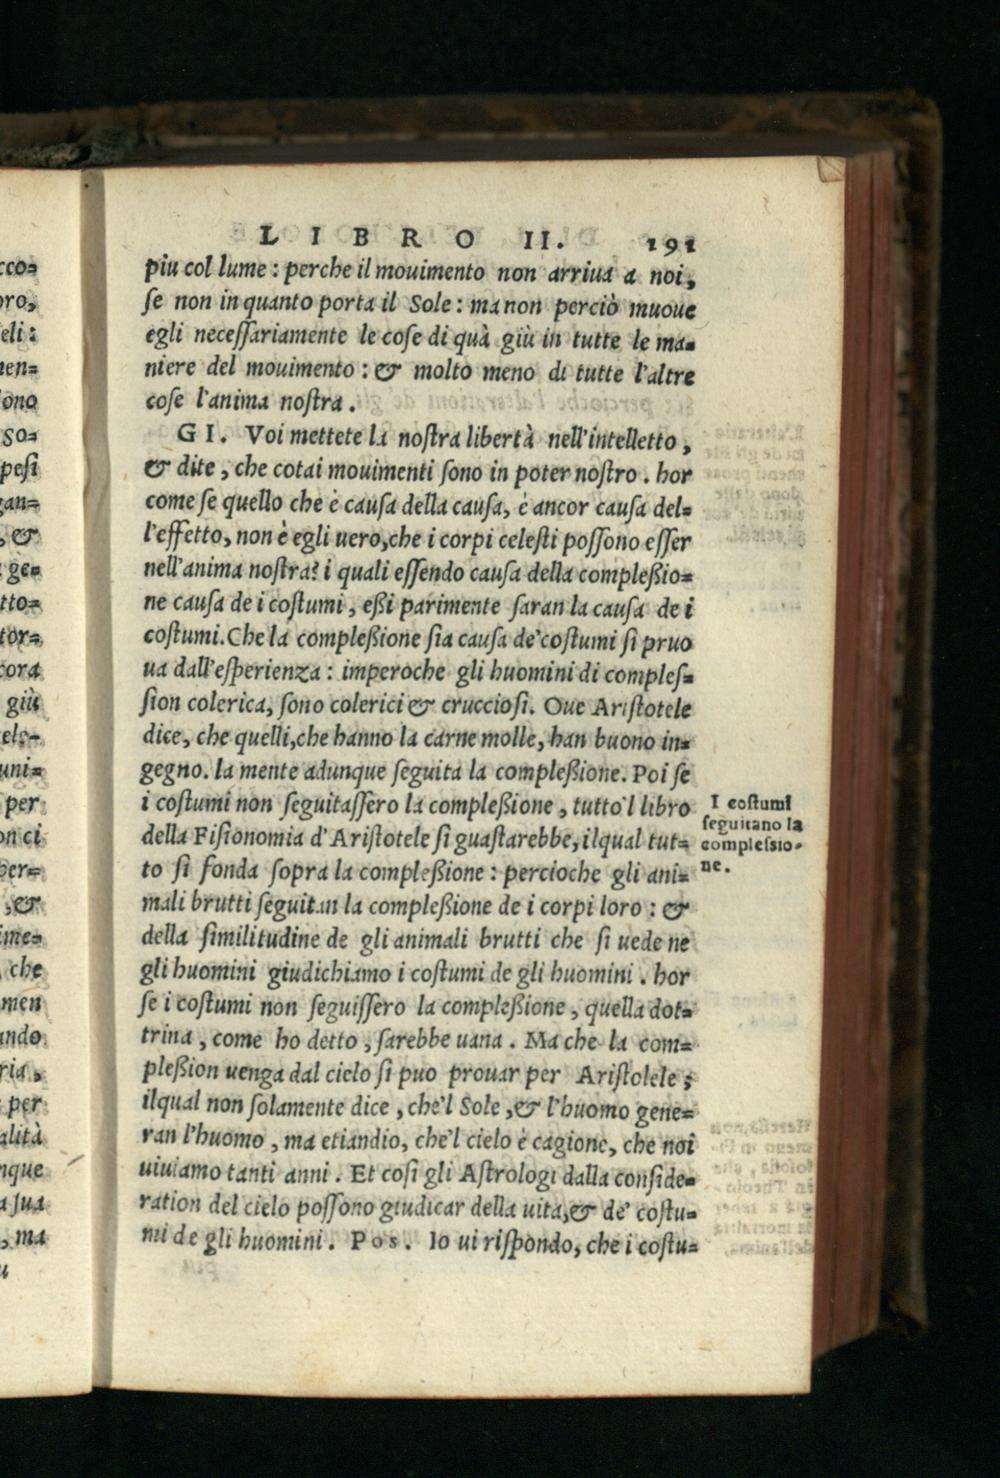 LIBRO II. 191
piu col lume : perche il mouimento non arriua a noi,
se non in quanto porta il Sole : ma non perciò muoue
egli necessariamente le cose di quà giù in tutte le ma=
niere del mouimento : & molto meno di tutte l'altre
cose l'anima nostra.
GI. Voi mettete la nostra libertà nell'intelletto,
& dite, che cotai mouimenti sono in poter nostro. hor
come se quello che è causa della causa, è ancor causa del=
l'effetto, non è egli uero, che i corpi celesti possono esser
nell'anima nostra? i quali essendo causa della compleßio=
ne causa de i costumi, eßi parimente saran la causa de i
costumi. Che la compleßione sia causa de' costumi si pruo
ua dall'esperienza : imperoche gli huomini di comples=
sion colerica, sono colerici & crucciosi. Oue Aristotele
dice, che quelli, che hanno la carne molle, han buono in=
gegno. la mente adunque seguita la compleßione. Poi se
i costumi non seguitassero la compleßione, tutto'l libro
della Fisionomia d'Aristotele si guastarebbe, ilqual tut=
to si fonda sopra la compleßione : percioche gli ani=
mali brutti seguitan la compleßione de i corpi loro : &
della similitudine de gli animali brutti che si uede ne
gli huomini giudichiamo i costumi de gli huomini. hor
se i costumi non seguissero la compleßione, quella dot=
trina, come ho detto, sarebbe uana. Ma che la com=
pleßion uenga dal cielo si puo prouar per Aristolele ;
ilqual non solamente dice, che'l Sole, & l'huomo gene=
ran l'huomo, ma etiandio, che'l cielo è cagione, che noi
uiuiamo tanti anni. Et cosi gli Astrologi dalla conside=
ration del cielo possono giudicar della uita, & de' costu=
mi de gli huomini. Pos. Io ui rispondo, che i costu=
I costumi
seguitano la
complessio-
ne.